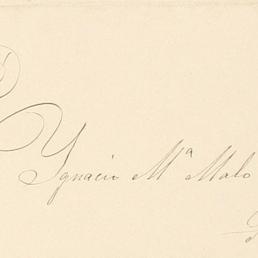 Ygnacio Mª Malo